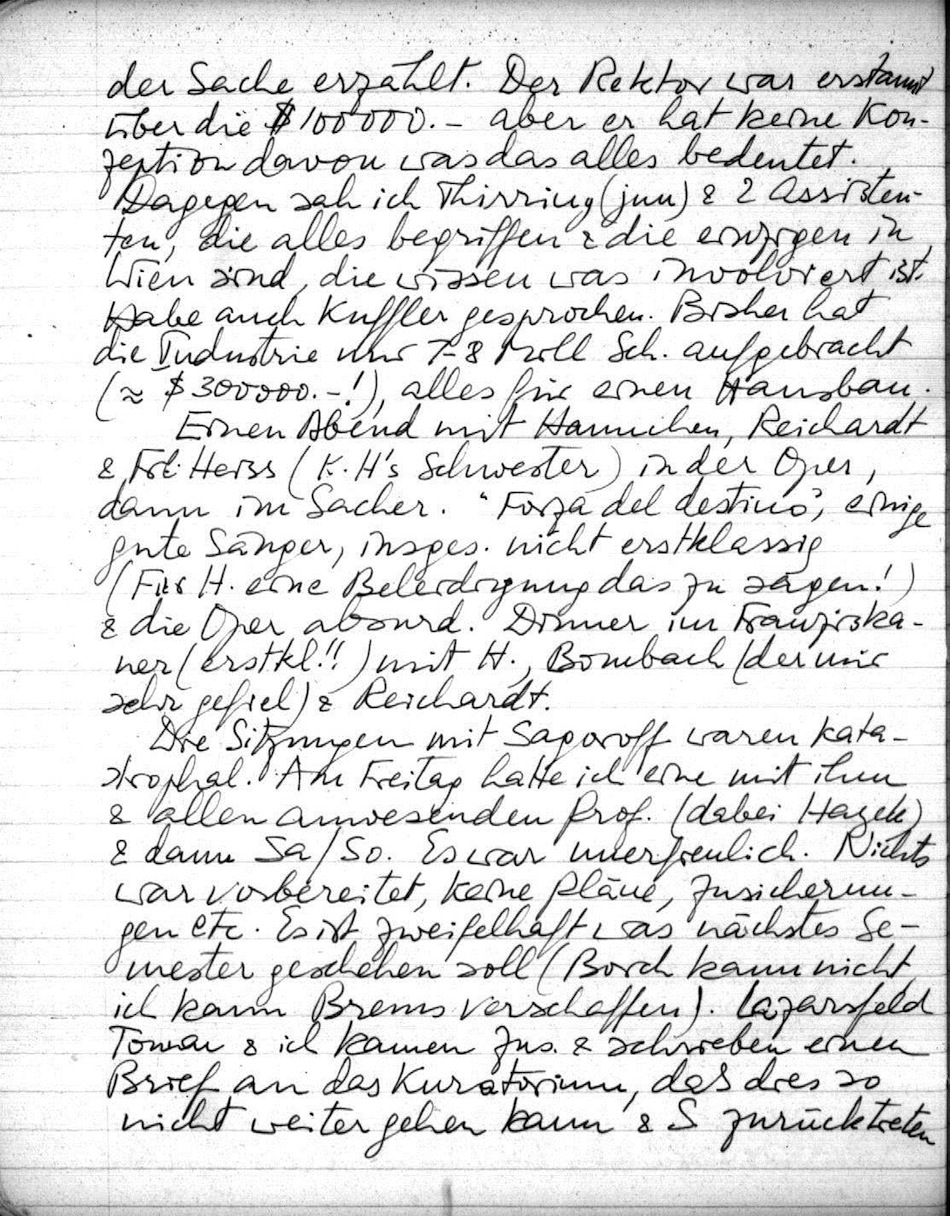 der Sache erzählt. Der Rektor war erstaunt
über die $100'000.– aber er hat keine Kon-
zeption davon was das alles bedeutet.
Dagegen sah ich Thirring (jun) & 2 Assisten-
ten, die alles begriffen & die einzigen in
Wien sind, die wissen was involviert ist.
Habe auch Kuffler gesprochen. Bisher hat
die Industrie nur 7-8 Mill Sch. aufgebracht
(≈ $300'000.–!), alles für einen Hausbau.
Einen Abend mit Hannchen, Reichardt
& Frl. Heiss (K.H's Schwester) in der Oper,
dann im Sacher. "Forza del destino", einige
gute Sänger, insges. nicht erstklassig
(Für H. eine Beleidigung das zu sagen!)
& die Oper absurd. Dinner im Franziska-
ner (erstkl!!) mit H., Bombach (der mir
sehr gefiel) & Reichardt.
Die Sitzungen mit Sagoroff waren kata-
strophal. Am Freitag hatte ich eine mit ihm
& allen anwesenden Prof. (dabei Hayek)
& dann Sa/So. Es war unerfreulich. Nichts
war vorbereitet, keine Pläne, Zusicherun-
gen etc. Es ist zweifelhaft was nächstes Se-
mester geschehen soll (Borch kann nicht,
ich kann Brems verschaffen). Lazarsfeld
Toman & ich kamen zus. & schrieben einen
Brief an das Kuratorium, daß dies so
nicht weiter gehen kann & S zurücktreten